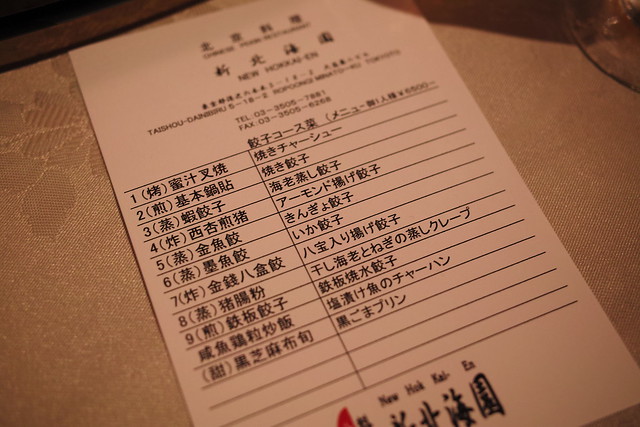 北京料理
CHINESE PEKIN-RESTAURANT
新北海園
NEW HOKKAI-EN
TAISHOU-DAINIBIRU 5-18-2 ROPOONGI MINATO-KU TOKYOTO
TEL 03-3505-7881
FAX 03-3505-6268
餃子コース菜 (メニュー御1人様¥6500-
1(烤)蜜汁叉焼 焼きチャーシュー
2(煎)基本鍋貼 焼き餃子
3(蒸)蝦餃子 海老蒸し餃子
4(炸)西杏煎猪 アーモンド揚げ餃子
5(蒸)金魚餃 きんぎょ餃子
6(蒸)墨魚餃 いか餃子
7(炸)金錢八盒餃 八宝入り揚げ餃子
8(蒸)猪腸粉 干し海老とねぎの蒸しクレープ
9(煎)鉄板餃子 鉄板焼水餃子
咸魚鶏粒炒飯 塩漬け魚のチャーハン
(甜)黒芝麻布旬 黒ごまプリン
New Hok Kai- En
新北海園